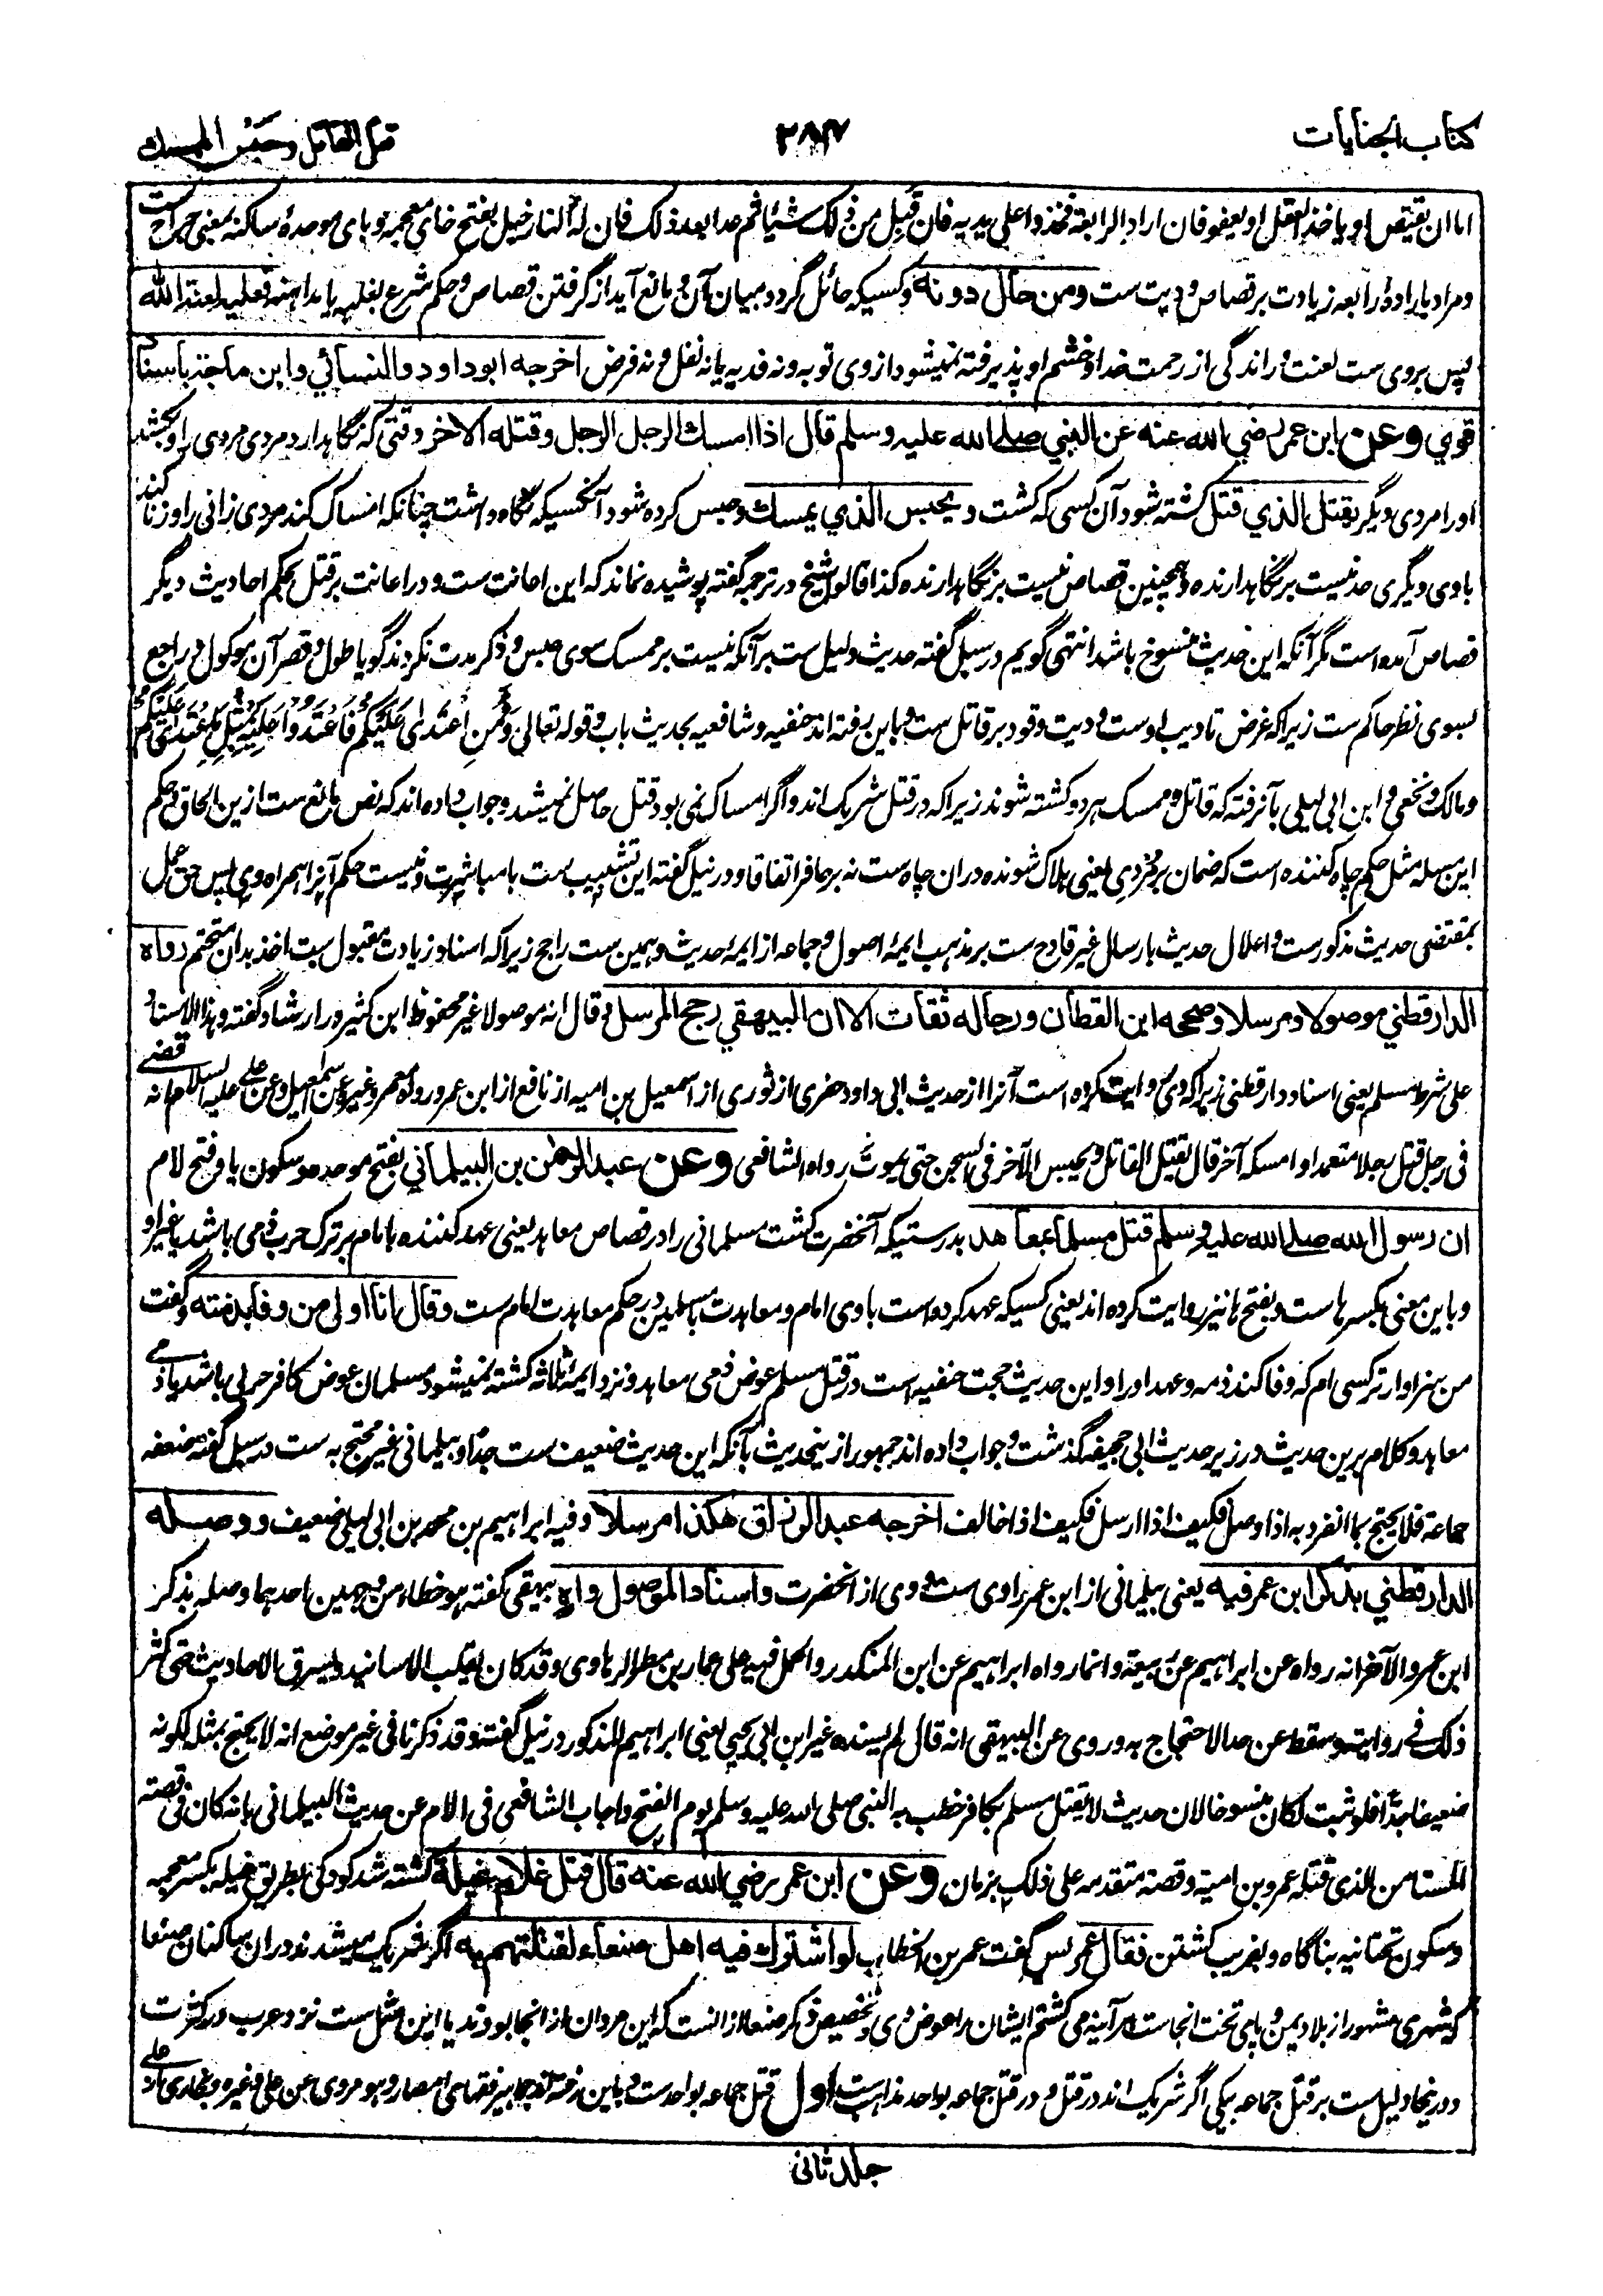 کتاب الجنایات
۳۸۷
قتل القاتل وحبس الممسك
اما ان یقتص او یاخذ العقل او یعفو فان اراد الرابعة فخذوا علی یدیه فان قبل من ذلک شیئا ثم عدا بعد ذلک فان له النار خبل بفتح خای معجمه و بای موحدهٔ ساکنه بمعنی جراحت
و مراد بارادهٔ رابعه زیادت بر قصاص و دیت ست ومن حال دونه و کسیکه حائل گردد میان آن و مانع آید از گرفتن قصاص و حکم شرع بغلبه یا مداهنه فعلیه لعنة الله
پس بروی ست لعنت و راندگی از رحمت خدا و خشم او پذیرفته نمیشود از وی توبه و نه فدیه یا نه نفل و نه فرض اخرجه ابو داود والنسائي وابن ماجة باسناد
قوي وعن ابن عمر رضي الله عنه عن النبي صلى الله عليه وسلم قال اذا امسك الرجل الرجل وقتله الاخر وقتی که نگاهدارد مردی مردی را و بکشد
او را مردی دیگر یقتل الذي قتل کشته شود آن کسی که کشت ويحبس الذي يمسك و حبس کرده شود آنکسیکه نگاه داشت چنانکه امساک کند مردی زانی را و زنا کند
با وی دیگری حد نیست بر نگاهدارنده و همچنین قصاص نیست بر نگاهدارنده کذا قالوا شیخ در ترجمه گفته پوشیده نماند که این اعانت ست و در اعانت بر قتل بحکم احادیث دیگر
قصاص آمده است مگر آنکه این حدیث منسوخ باشد انتهی گویم در سبل گفته حدیث دلیل ست بر آنکه نیست بر ممسک سوی حبس و ذکر مدت نکردند گویا طول و قصر آن موکول و راجع
بسوی نظر حاکم ست زیرا که غرض تادیب اوست و دیت و قود بر قاتل ست و باین رفته اند حنفیه و شافعیه بحدیث باب و قوله تعالی فَمَنِ اعْتَدَى عَلَيْكُمْ فَاعْتَدُوا عَلَيْهِ بِمِثْلِ مَا اعْتَدَى عَلَيْكُمْ
و مالک و نخعی و ابن ابی لیلی بآن رفته که قاتل و ممسک هر دو کشته شوند زیرا که در قتل شریک اند و اگر امساک نمی بود قتل حاصل نمیشد و جواب داده اند که نص مانع ست ازین الحاق و حکم
این مسله مثل حکم چاه کننده است که ضمان بر مردی یعنی هلاک شونده دران چاه ست نه بر حافر اتفاقا و در نیل گفته این تسبیب ست با مباشرت و نیست حکم آنرا همراه وی پس حق عمل
بمقتضی حدیث مذکورست و اعلال حدیث بارسال غیر قادح ست بر مذهب ایمهٔ اصول و جماعه از ایمهٔ حدیث و همین ست راجح زیرا که اسناد زیادت مقبول ست اخذ بدان متحتم رواه
الدارقطني موصولا ومرسلا وصححه ابن القطان ورجاله ثقات الا ان البيهقي رجح المرسل و قال انه موصولا غیر محفوظ ابن کثیر در ارشاد گفته و هذا الاسناد
علی شرط مسلم یعنی اسناد دارقطنی زیرا که وی روایت کرده است آنرا از حدیث ابی داود حفری از ثوری از اسمعیل بن امیه از نافع از ابن عمر و رواه معمر و غیره عن اسمعیل و عن علی علیه السلام انه قضی
فی رجل قتل رجلا متعمدا و امسکه آخر قال یقتل القاتل و یحبس الآخر فی السجن حتی یموت رواه الشافعی وعن عبد الرحمن بن البيلماني بفتح موحده و سکون یا و فتح لام
ان رسول الله صلى الله عليه وسلم قتل مسلما بمعاهد بدرستیکه آنحضرت کشت مسلمانی را در قصاص معاهد یعنی عهد کننده با امام بر ترک حرب ذمی باشد یا غیر او
و باین معنی بکسر ها ست و بفتح ها نیز روایت کرده اند یعنی کسیکه عهد کرده است با وی امام و معاهدت مسلمین در حکم معاهدت امام ست وقال انا اولى من وفا بذمته و گفت
من سزاوارتر کسی ام که وفا کند ذمه و عهد او را و این حدیث حجت حنفیه است در قتل مسلم عوض ذمی معاهد و نزد ایمهٔ ثلاثه کشته نمیشود مسلمان عوض کافر حربی باشد یا ذمی
معاهد و کلام برین حدیث در زیر حدیث ابی جحیفه گذشت و جواب داده اند جمهور ازینحدیث بآنکه این حدیث ضعیف ست جدا و بیلمانی غیر محتج به ست در سبل گفته ضعفه
جماعة فلا یحتج بما انفرد به اذا وصل فکیف اذا ارسل فکیف اذا خالف اخرجه عبد الرزاق هكذا مرسلا و فیه ابراهیم بن محمد بن ابی لیلی ضعیف ووصله
الدارقطني بذكر ابن عمر فيه یعنی بیلمانی از ابن عمر راوی ست و وی از انحضرت واسناد الموصول واه بیهقی گفته هو خطاء من وجهین احدهما وصله بذکر
ابن عمر و الآخر انه رواه عن ابراهیم عن ربیعة و انما رواه ابراهیم عن ابن المنکدر و الحمل فیه علی عمار بن مطر الرهاوی و قد کان یقلب الاسانید و یسرق الاحادیث حتی کثر
ذلک فی روایته و سقط عن حد الاحتجاج به و روی عن البیهقی انه قال لم یسنده غیر ابن ابی یحیی یعنی ابراهیم المذکور در نیل گفته و قد ذکرنا فی غیر موضع انه لا یحتج بمثله لکونه
ضعیفا جدا فلو ثبت لکان منسوخا لان حدیث لا یقتل مسلم بکافر خطب به النبی صلی الله علیه و سلم یوم الفتح و اجاب الشافعی فی الام عن حدیث البیلمانی بانه کان فی قصة
المستامن الذی قتله عمرو بن امیة و قصته متقدمه علی ذلک بزمان وعن ابن عمر رضي الله عنه قال قتل غلام غيلة کشته شد کودکی بطریق غیله بکسر معجمه
و سکون تحتانیه بناگاه و بفریب کشتن فقال عمر پس گفت عمر بن الخطاب لو اشترك فيه اهل صنعاء لقتلتهم به اگر شریک میشدند دران ساکنان صنعا
که شهری مشهور از بلاد یمن و پای تخت انجاست هر آینه می کشتم ایشان را عوض وی و تخصیص ذکر صنعا ازانست که این مردان از انجا بودند یا این مثل ست نزد عرب در کثرت
و درینجا دلیل ست بر قتل جماعه بیکی اگر شریک اند در قتل و در قتل جماعه بواحد مذاهب ست اول قتل جماعه بواحد ست و باین رفته اند جماهیر فقهای امصار و هو مروی عن علی و غیره و بخاری از علی
جلد ثانی